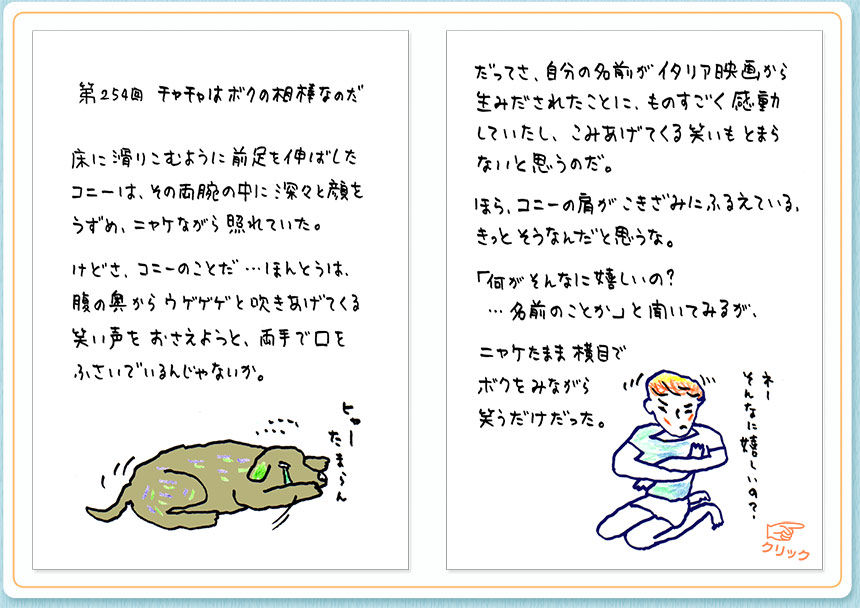 第254回 チャチャはボクの相棒なのだ
床に滑りこむように前足を伸ばした
コニーは、その両腕の中に深々と顔を
うずめ、ニヤケながら照れていた。
けどさ、コニーのことだ…ほんとうは、
腹の奥からウゲゲゲと吹きあげてくる
笑い声をおさえようと、両手で口を
ふさいでいるんじゃないか。
ヒャー
たまらん
だってさ、自分の名前がイタリア映画から
生みだされたことに、ものすごく感動
していたし、こみあげてくる笑いもとまら
ないと思うのだ。
ほら、コニーの肩がこきざみにふるえている、
きっとそうなんだと思うな。
「何がそんなに嬉しいの?
…名前のことか」と聞いてみるが、
ニヤケたまま横目で
ボクをみながら
笑うだけだった。
ネー
そんなに嬉しいの?
クリック